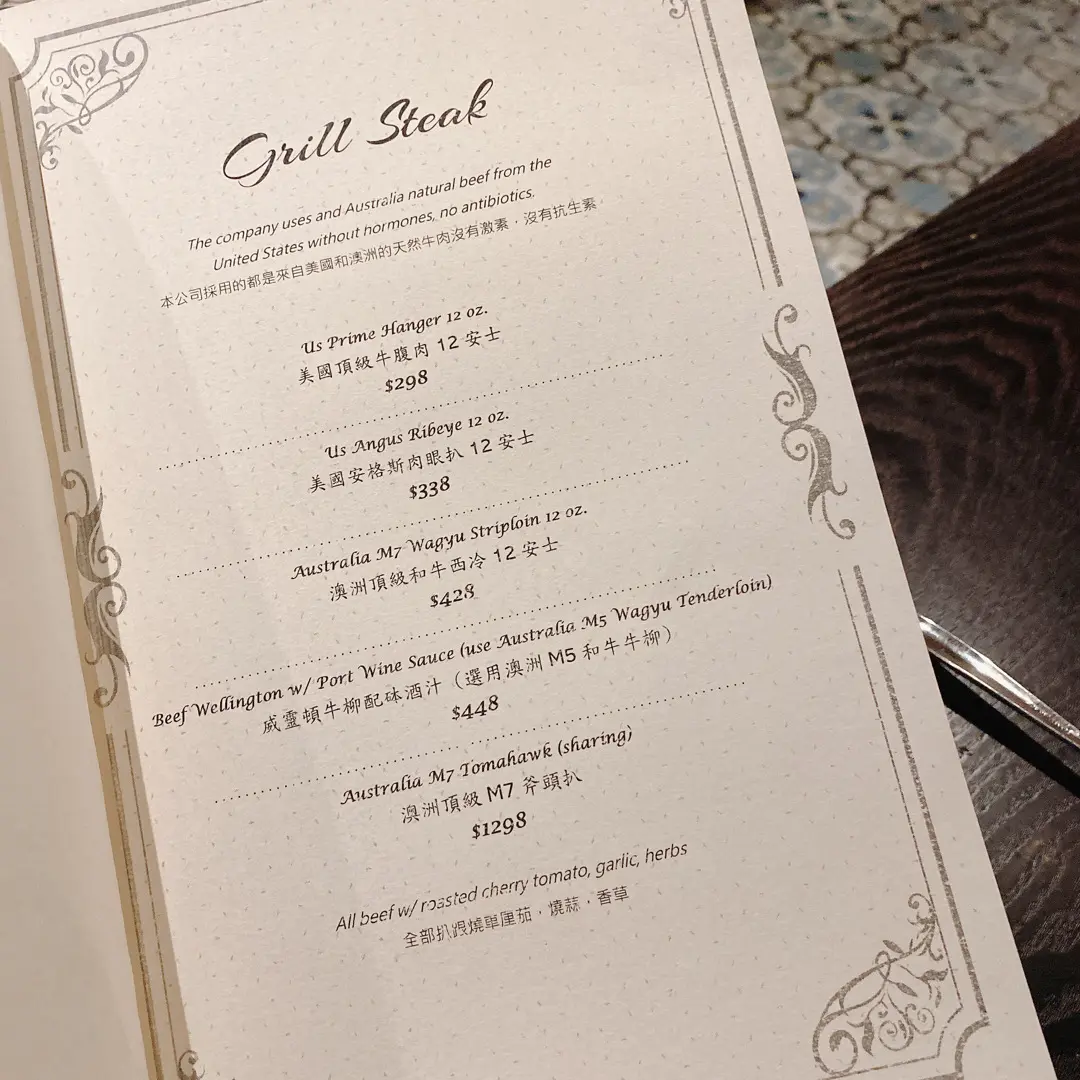 Grill Steak
The company uses and Australia natural beef from the
United States without hormones, no antibiotics.
本公司採用的都是來自美國和澳洲的天然牛肉沒有激素，沒有抗生素
Us Prime Hanger 12 oz.
美國頂級牛腹肉 12 安士
$298
Us Angus Ribeye 12 oz.
美國安格斯肉眼扒 12 安士
$338
Australia M7 Wagyu Striploin 12 oz.
澳洲頂級和牛西冷 12 安士
$428
Beef Wellington w/ Port Wine Sauce (use Australia M5 Wagyu Tenderloin)
威靈頓牛柳配砵酒汁（選用澳洲 M5 和牛牛柳）
$448
Australia M7 Tomahawk (sharing)
澳洲頂級 M7 斧頭扒
$1298
All beef w/ roasted cherry tomato, garlic, herbs
全部扒跟燒車厘茄，燒蒜，香草